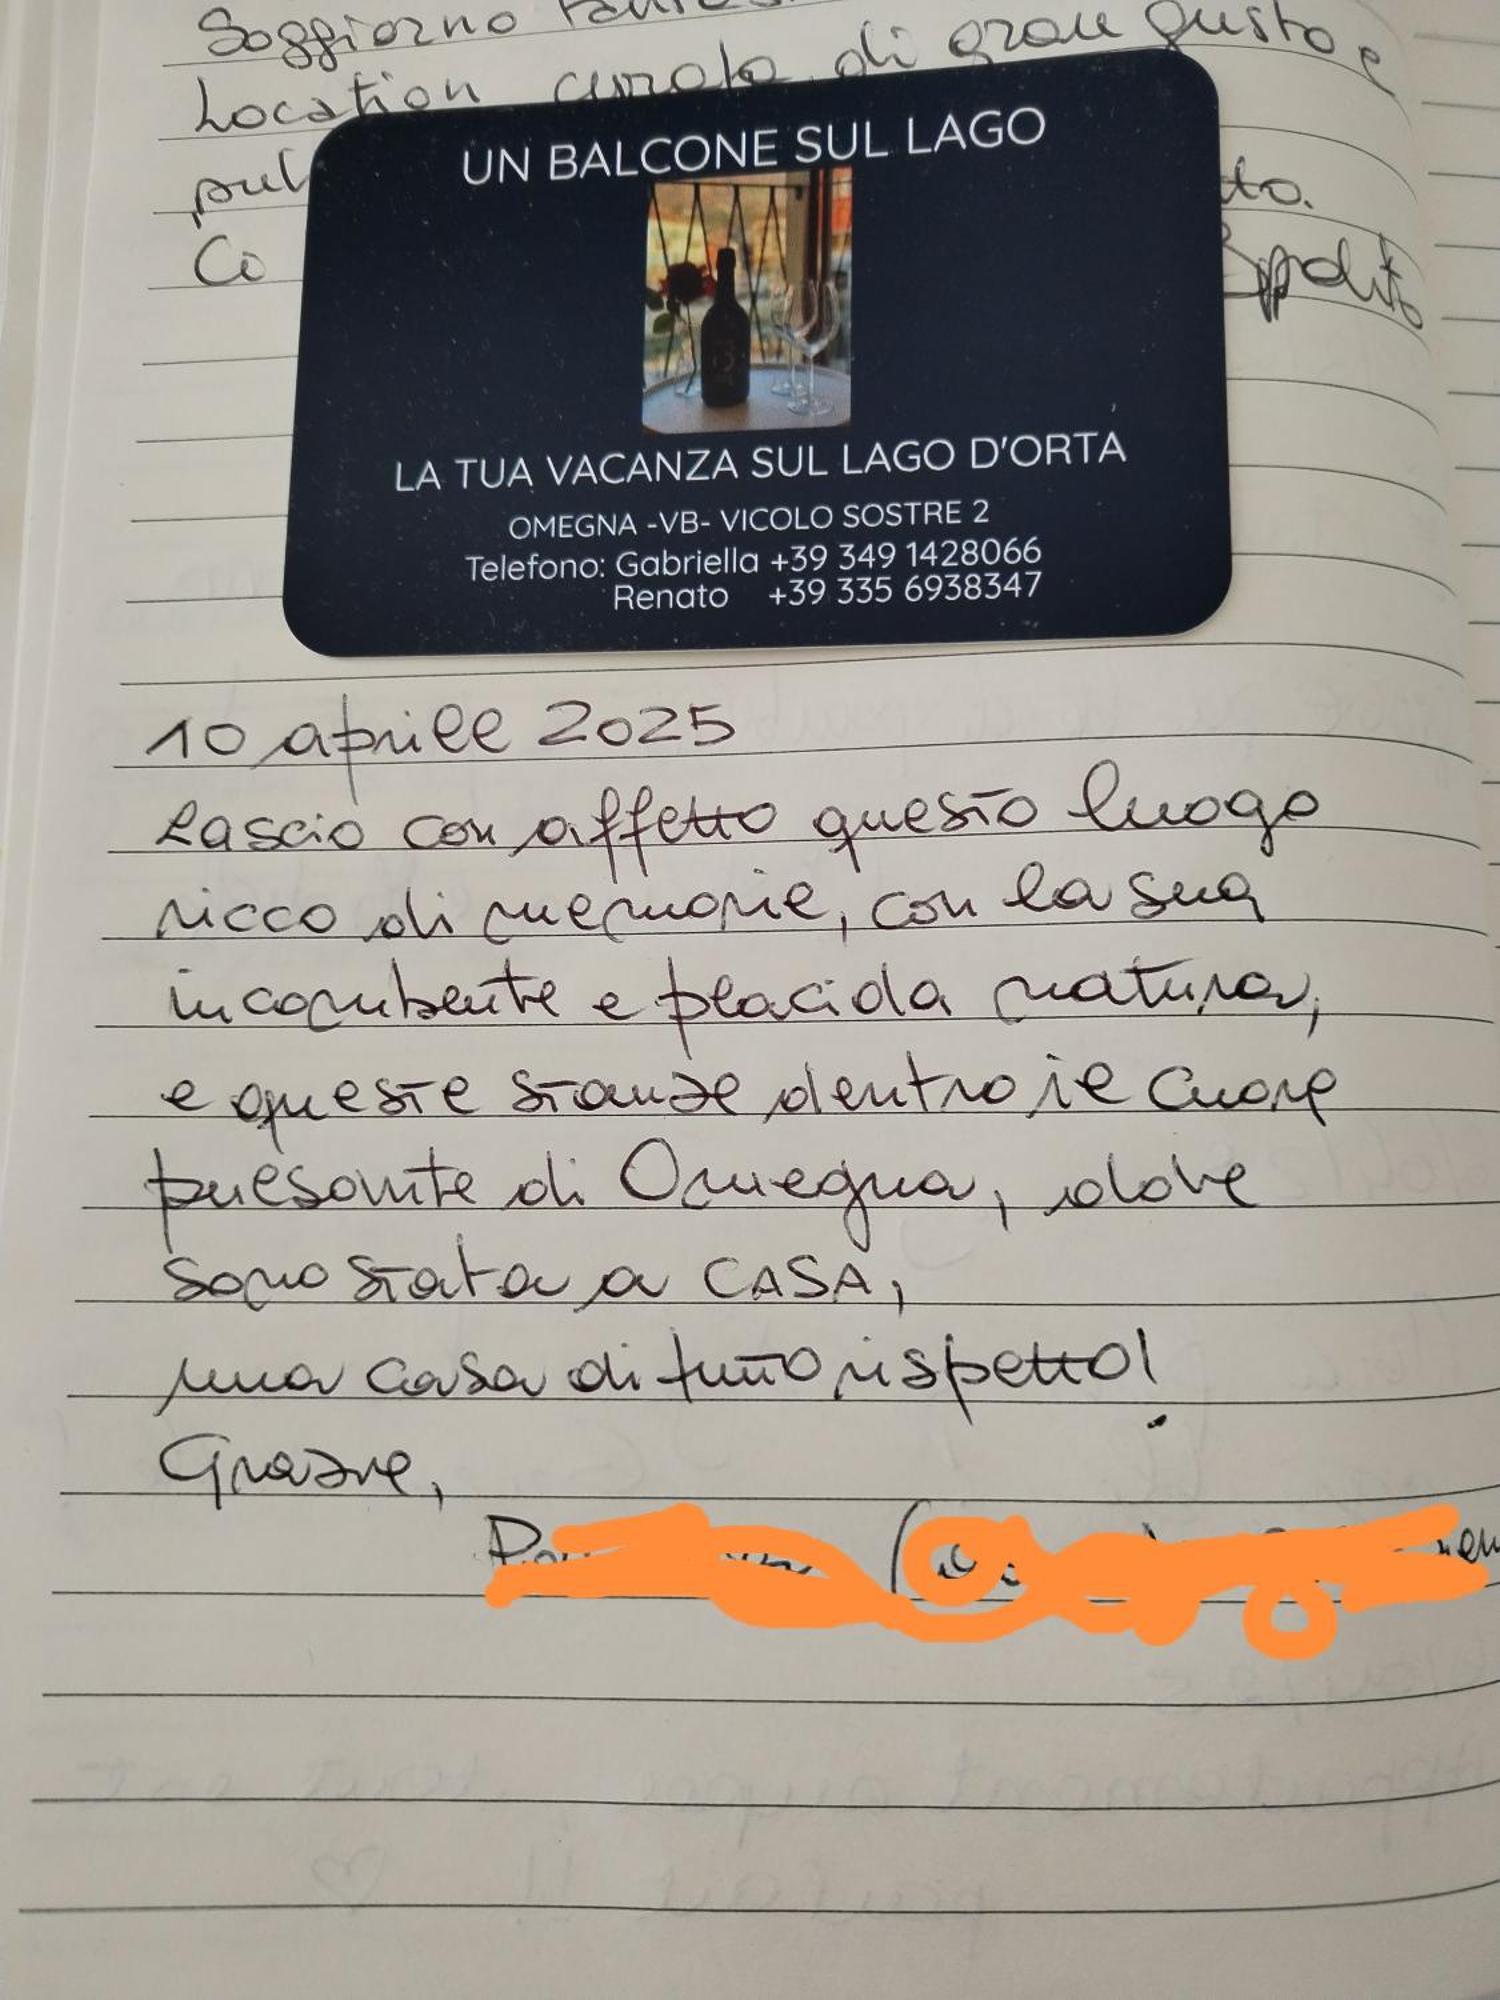 Soggiorno
Location curata di gran gusto e
pul
to.
Ci
Ippolito
UN BALCONE SUL LAGO
LA TUA VACANZA SUL LAGO D'ORTA
OMEGNA -VB- VICOLO SOSTRE 2
Telefono: Gabriella +39 349 1428066
Renato +39 335 6938347
10 aprile 2025
Lascio con affetto questo luogo
ricco di memorie, con la sua
incombente e placida natura,
e queste stanze dentro il cuore
pulsante di Omegna, dove
sono stata a CASA,
una casa di tutto rispetto!
Grazie,